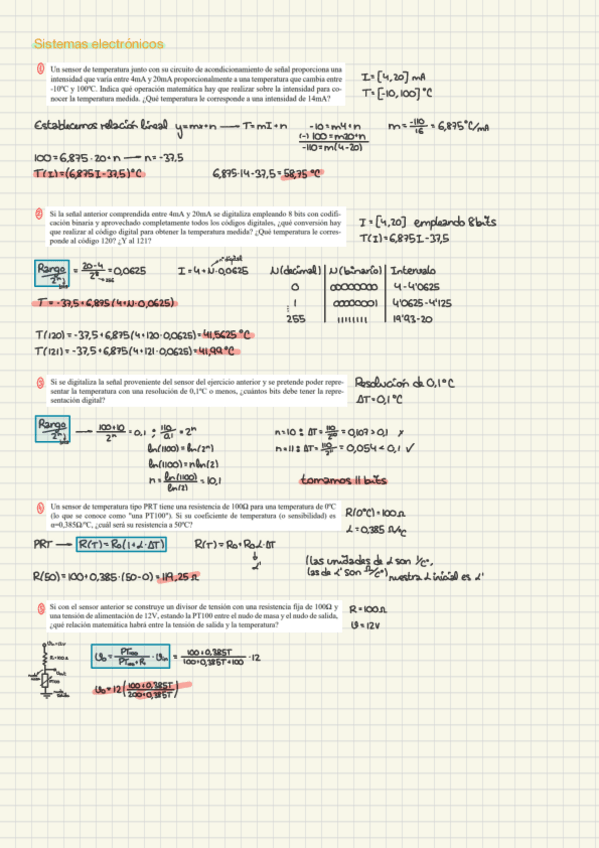 Sistemas electrónicos
1 Un sensor de temperatura junto con su circuito de acondicionamiento de señal proporciona una
intensidad que varía entre 4mA y 20mA proporcionalmente a una temperatura que cambia entre
-10ºC y 100ºC. Indica qué operación matemática hay que realizar sobre la intensidad para co-
nocer la temperatura medida. ¿Qué temperatura le corresponde a una intensidad de 14mA?
I = [4,20] mA
T = [-10,100] °C
Establecemos relación lineal y=mx+n → T=mI+n
-10=m4+n
(-) 100=m20+n
-110=m(4-20)
m = -110/-16 = 6,875 °C/mA
100 = 6,875·20+n → n=-37,5
T(I)=(6,875I-37,5)°C
6,875·14-37,5=58,75 °C
2 Si la señal anterior comprendida entre 4mA y 20mA se digitaliza empleando 8 bits con codifi-
cación binaria y aprovechado completamente todos los códigos digitales, ¿qué conversión hay
que realizar al código digital para obtener la temperatura medida? ¿Qué temperatura le corres-
ponde al código 120? ¿Y al 121?
I = [4,20] empleando 8 bits
T(I)=6,875I-37,5
Rango/2ⁿ = 20-4/2⁸ = 0,0625
I = 4+N·0,0625
digital
N(decimal) N(binario) Intervalo
0 00000000 4-4'0625
1 00000001 4'0625-4'125
255 11111111 19'93-20
T = -37,5+6,875(4+N·0,0625)
T(120) = -37,5+6,875(4+120·0,0625)=41,5625 °C
T(121) = -37,5+6,875(4+121·0,0625)=41,99 °C
3 Si se digitaliza la señal proveniente del sensor del ejercicio anterior y se pretende poder repre-
sentar la temperatura con una resolución de 0,1ºC o menos, ¿cuántos bits debe tener la repre-
sentación digital?
Resolución de 0,1°C
ΔT=0,1°C
Rango/2ⁿ → 100+10/2ⁿ = 0,1 ; 110/0,1 = 2ⁿ
ln(1100)=ln(2ⁿ)
ln(1100)=nln(2)
n = ln(1100)/ln(2) = 10,1
n=10 : ΔT = 110/2¹⁰ = 0,107>0,1 x
n=11 : ΔT = 110/2¹¹ = 0,054<0,1 ✓
tomamos 11 bits
4 Un sensor de temperatura tipo PRT tiene una resistencia de 100Ω para una temperatura de 0ºC
(lo que se conoce como "una PT100"). Si su coeficiente de temperatura (o sensibilidad) es
α=0,385Ω/ºC, ¿cuál será su resistencia a 50ºC?
R(0°C)=100Ω
α=0,385 Ω/°C
PRT → R(T)=R₀(1+α·ΔT)
R(T)=R₀+R₀α·ΔT
α'
(las unidades de α son 1/°C,
las de α' son Ω/°C) nuestra α inicial es α'
R(50)=100+0,385·(50-0)=119,25 Ω
5 Si con el sensor anterior se construye un divisor de tensión con una resistencia fija de 100Ω y
una tensión de alimentación de 12V, estando la PT100 entre el nudo de masa y el nudo de salida,
¿qué relación matemática habrá entre la tensión de salida y la temperatura?
R=100Ω
V=12V
V₀ = PT₁₀₀/PT₁₀₀+R · Vin = 100+0,385T/100+0,385T+100 · 12
V₀=12(100+0,385T/200+0,385T)